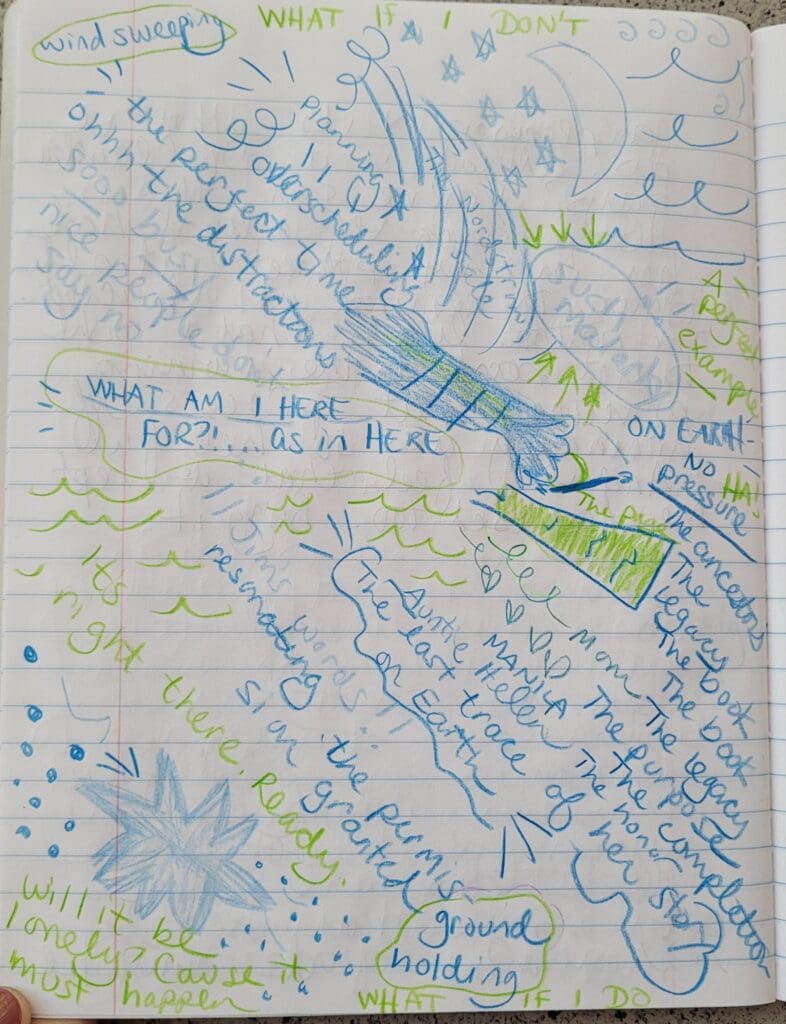 WHAT IF I DON'T
windsweeping
Planning
overscheduling
the perfect time
ohhh the distractions
sooo busy
nice people don't
say no
such
malarky
A
perfect
example
WHAT AM I HERE
FOR?!.... as in HERE
ON EARTH-
NO
pressure
HA!
The ancestors
The legacy
The book
The book
The legacy
The purpose
The completion
The honor
Mom
MANILA
Auntie Helen
The last trace of her story
on Earth
Jim's words
resonating. the permis
sion granted
It's
right there. Ready.
Will it be
lonely? Cause it
must happen
ground
holding
WHAT IF I DO